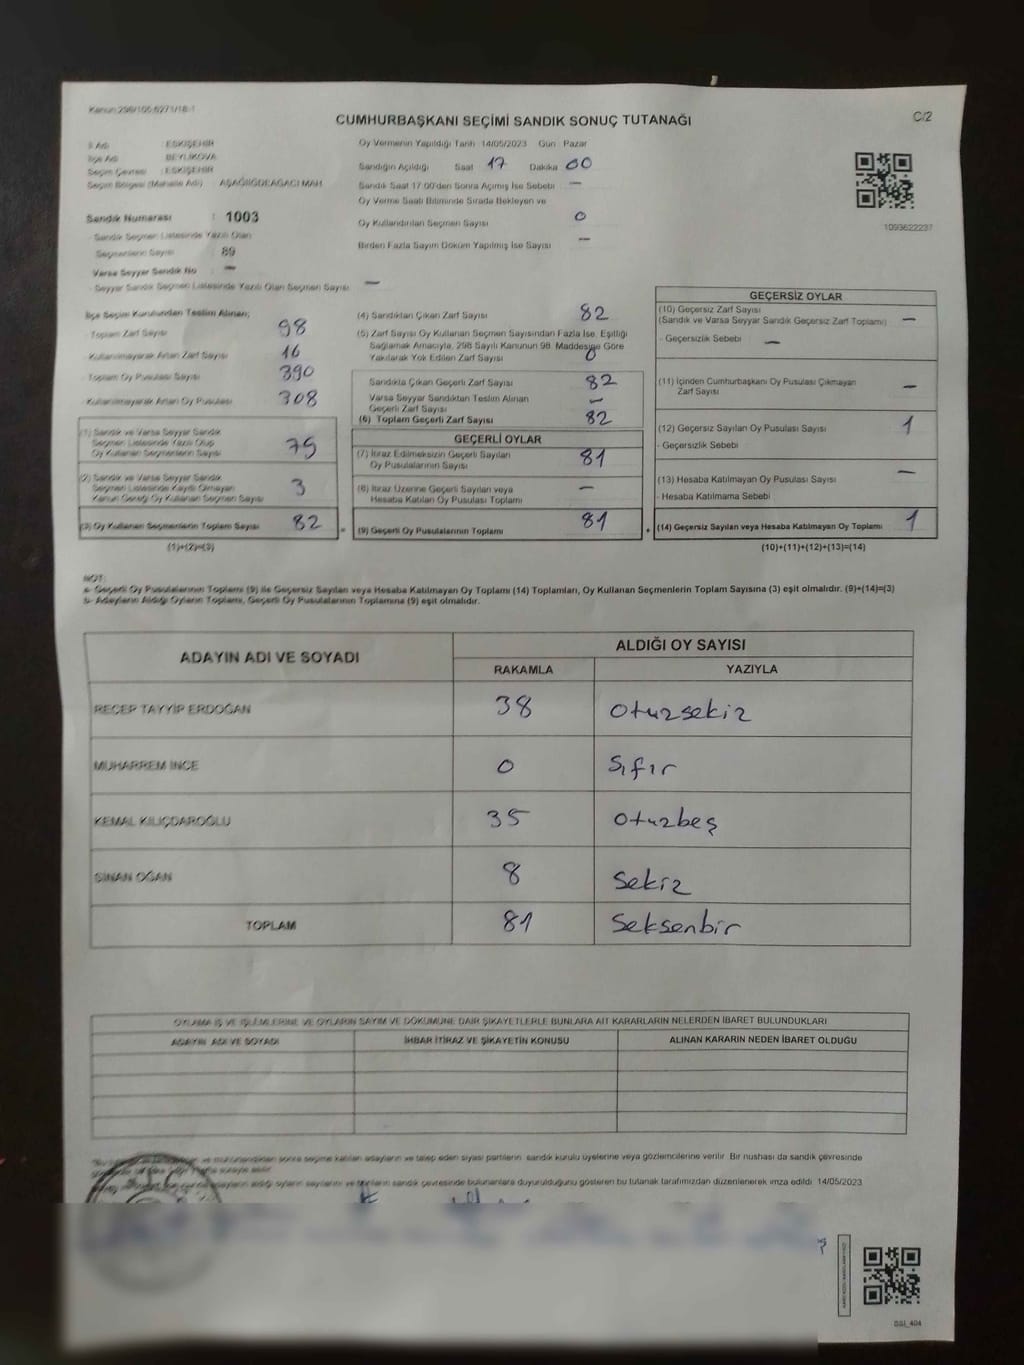 Kanun:298/105:6271/18-1
C/2
CUMHURBAŞKANI SEÇİMİ SANDIK SONUÇ TUTANAĞI
İl Adı : ESKİŞEHİR
İlçe Adı : BEYLİKOVA
Seçim Çevresi : ESKİŞEHİR
Seçim Bölgesi (Mahalle Adı) : AŞAĞIİĞDEAĞACI MAH.
Sandık Numarası : 1003
- Sandık Seçmen Listesinde Yazılı Olan
Seçmenlerin Sayısı : 89
Varsa Seyyar Sandık No : —
- Seyyar Sandık Seçmen Listesinde Yazılı Olan Seçmen Sayısı : —
Oy Vermenin Yapıldığı Tarih 14/05/2023 Gün : Pazar
Sandığın Açıldığı Saat 17 Dakika 00
Sandık Saat 17.00'den Sonra Açılmış İse Sebebi —
Oy Verme Saati Bitiminde Sırada Bekleyen ve
Oy Kullandırılan Seçmen Sayısı 0
Birden Fazla Sayım Döküm Yapılmış İse Sayısı —
1093622237
İlçe Seçim Kurulundan Teslim Alınan;
Toplam Zarf Sayısı 98
- Kullanılmayarak Artan Zarf Sayısı 16
- Toplam Oy Pusulası Sayısı 390
- Kullanılmayarak Artan Oy Pusulası 308
(1) Sandık ve Varsa Seyyar Sandık
Seçmen Listesinde Yazılı Olup
Oy Kullanan Seçmenlerin Sayısı 79
(2) Sandık ve Varsa Seyyar Sandık
Seçmen Listesinde Kayıtlı Olmayan
Kanun Gereği Oy Kullanan Seçmen Sayısı 3
(3) Oy Kullanan Seçmenlerin Toplam Sayısı 82
(1)+(2)=(3)
(4) Sandıktan Çıkan Zarf Sayısı 82
(5) Zarf Sayısı Oy Kullanan Seçmen Sayısından Fazla İse, Eşitliği
Sağlamak Amacıyla, 298 Sayılı Kanunun 98. Maddesine Göre
Yakılarak Yok Edilen Zarf Sayısı 0
Sandıkta Çıkan Geçerli Zarf Sayısı 82
Varsa Seyyar Sandıktan Teslim Alınan
Geçerli Zarf Sayısı —
(6) Toplam Geçerli Zarf Sayısı 82
GEÇERLİ OYLAR
(7) İtiraz Edilmeksizin Geçerli Sayılan
Oy Pusulalarının Sayısı 81
(8) İtiraz Üzerine Geçerli Sayılan veya
Hesaba Katılan Oy Pusulası Toplamı —
= (9) Geçerli Oy Pusulalarının Toplamı 81
GEÇERSİZ OYLAR
(10) Geçersiz Zarf Sayısı
(Sandık ve Varsa Seyyar Sandık Geçersiz Zarf Toplamı) —
- Geçersizlik Sebebi —
(11) İçinden Cumhurbaşkanı Oy Pusulası Çıkmayan
Zarf Sayısı —
(12) Geçersiz Sayılan Oy Pusulası Sayısı 1
- Geçersizlik Sebebi
(13) Hesaba Katılmayan Oy Pusulası Sayısı —
- Hesaba Katılmama Sebebi
+ (14) Geçersiz Sayılan veya Hesaba Katılmayan Oy Toplamı 1
(10)+(11)+(12)+(13)=(14)
NOT:
a- Geçerli Oy Pusulalarının Toplamı (9) ile Geçersiz Sayılan veya Hesaba Katılmayan Oy Toplamı (14) Toplamları, Oy Kullanan Seçmenlerin Toplam Sayısına (3) eşit olmalıdır. (9)+(14)=(3)
b- Adayların Aldığı Oyların Toplamı, Geçerli Oy Pusulalarının Toplamına (9) eşit olmalıdır.
ADAYIN ADI VE SOYADI
ALDIĞI OY SAYISI
RAKAMLA YAZIYLA
RECEP TAYYİP ERDOĞAN 38 Otuzsekiz
MUHARREM İNCE 0 Sıfır
KEMAL KILIÇDAROĞLU 35 Otuzbeş
SİNAN OĞAN 8 Sekiz
TOPLAM 81 Seksenbir
OYLAMA İŞ VE İŞLEMLERİNE VE OYLARIN SAYIM VE DÖKÜMÜNE DAİR ŞİKAYETLERLE BUNLARA AİT KARARLARIN NELERDEN İBARET BULUNDUKLARI
ADAYIN ADI VE SOYADI İHBAR İTİRAZ VE ŞİKAYETİN KONUSU ALINAN KARARIN NEDEN İBARET OLDUĞU
ve mühürlendikten sonra seçime katılan adayların ve talep eden siyasi partilerin sandık kurulu üyelerine veya gözlemcilerine verilir. Bir nüshası da sandık çevresinde
adayların aldığı oyların sayılarını ve bunların sandık çevresinde bulunanlara duyurulduğunu gösteren bu tutanak tarafımızdan düzenlenerek imza edildi. 14/05/2023